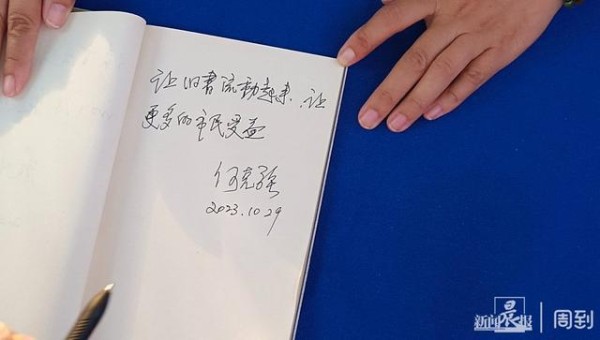 让旧书流动起来,让
更多的市民受益
何克强
2023.10.29
新闻晨报 周到